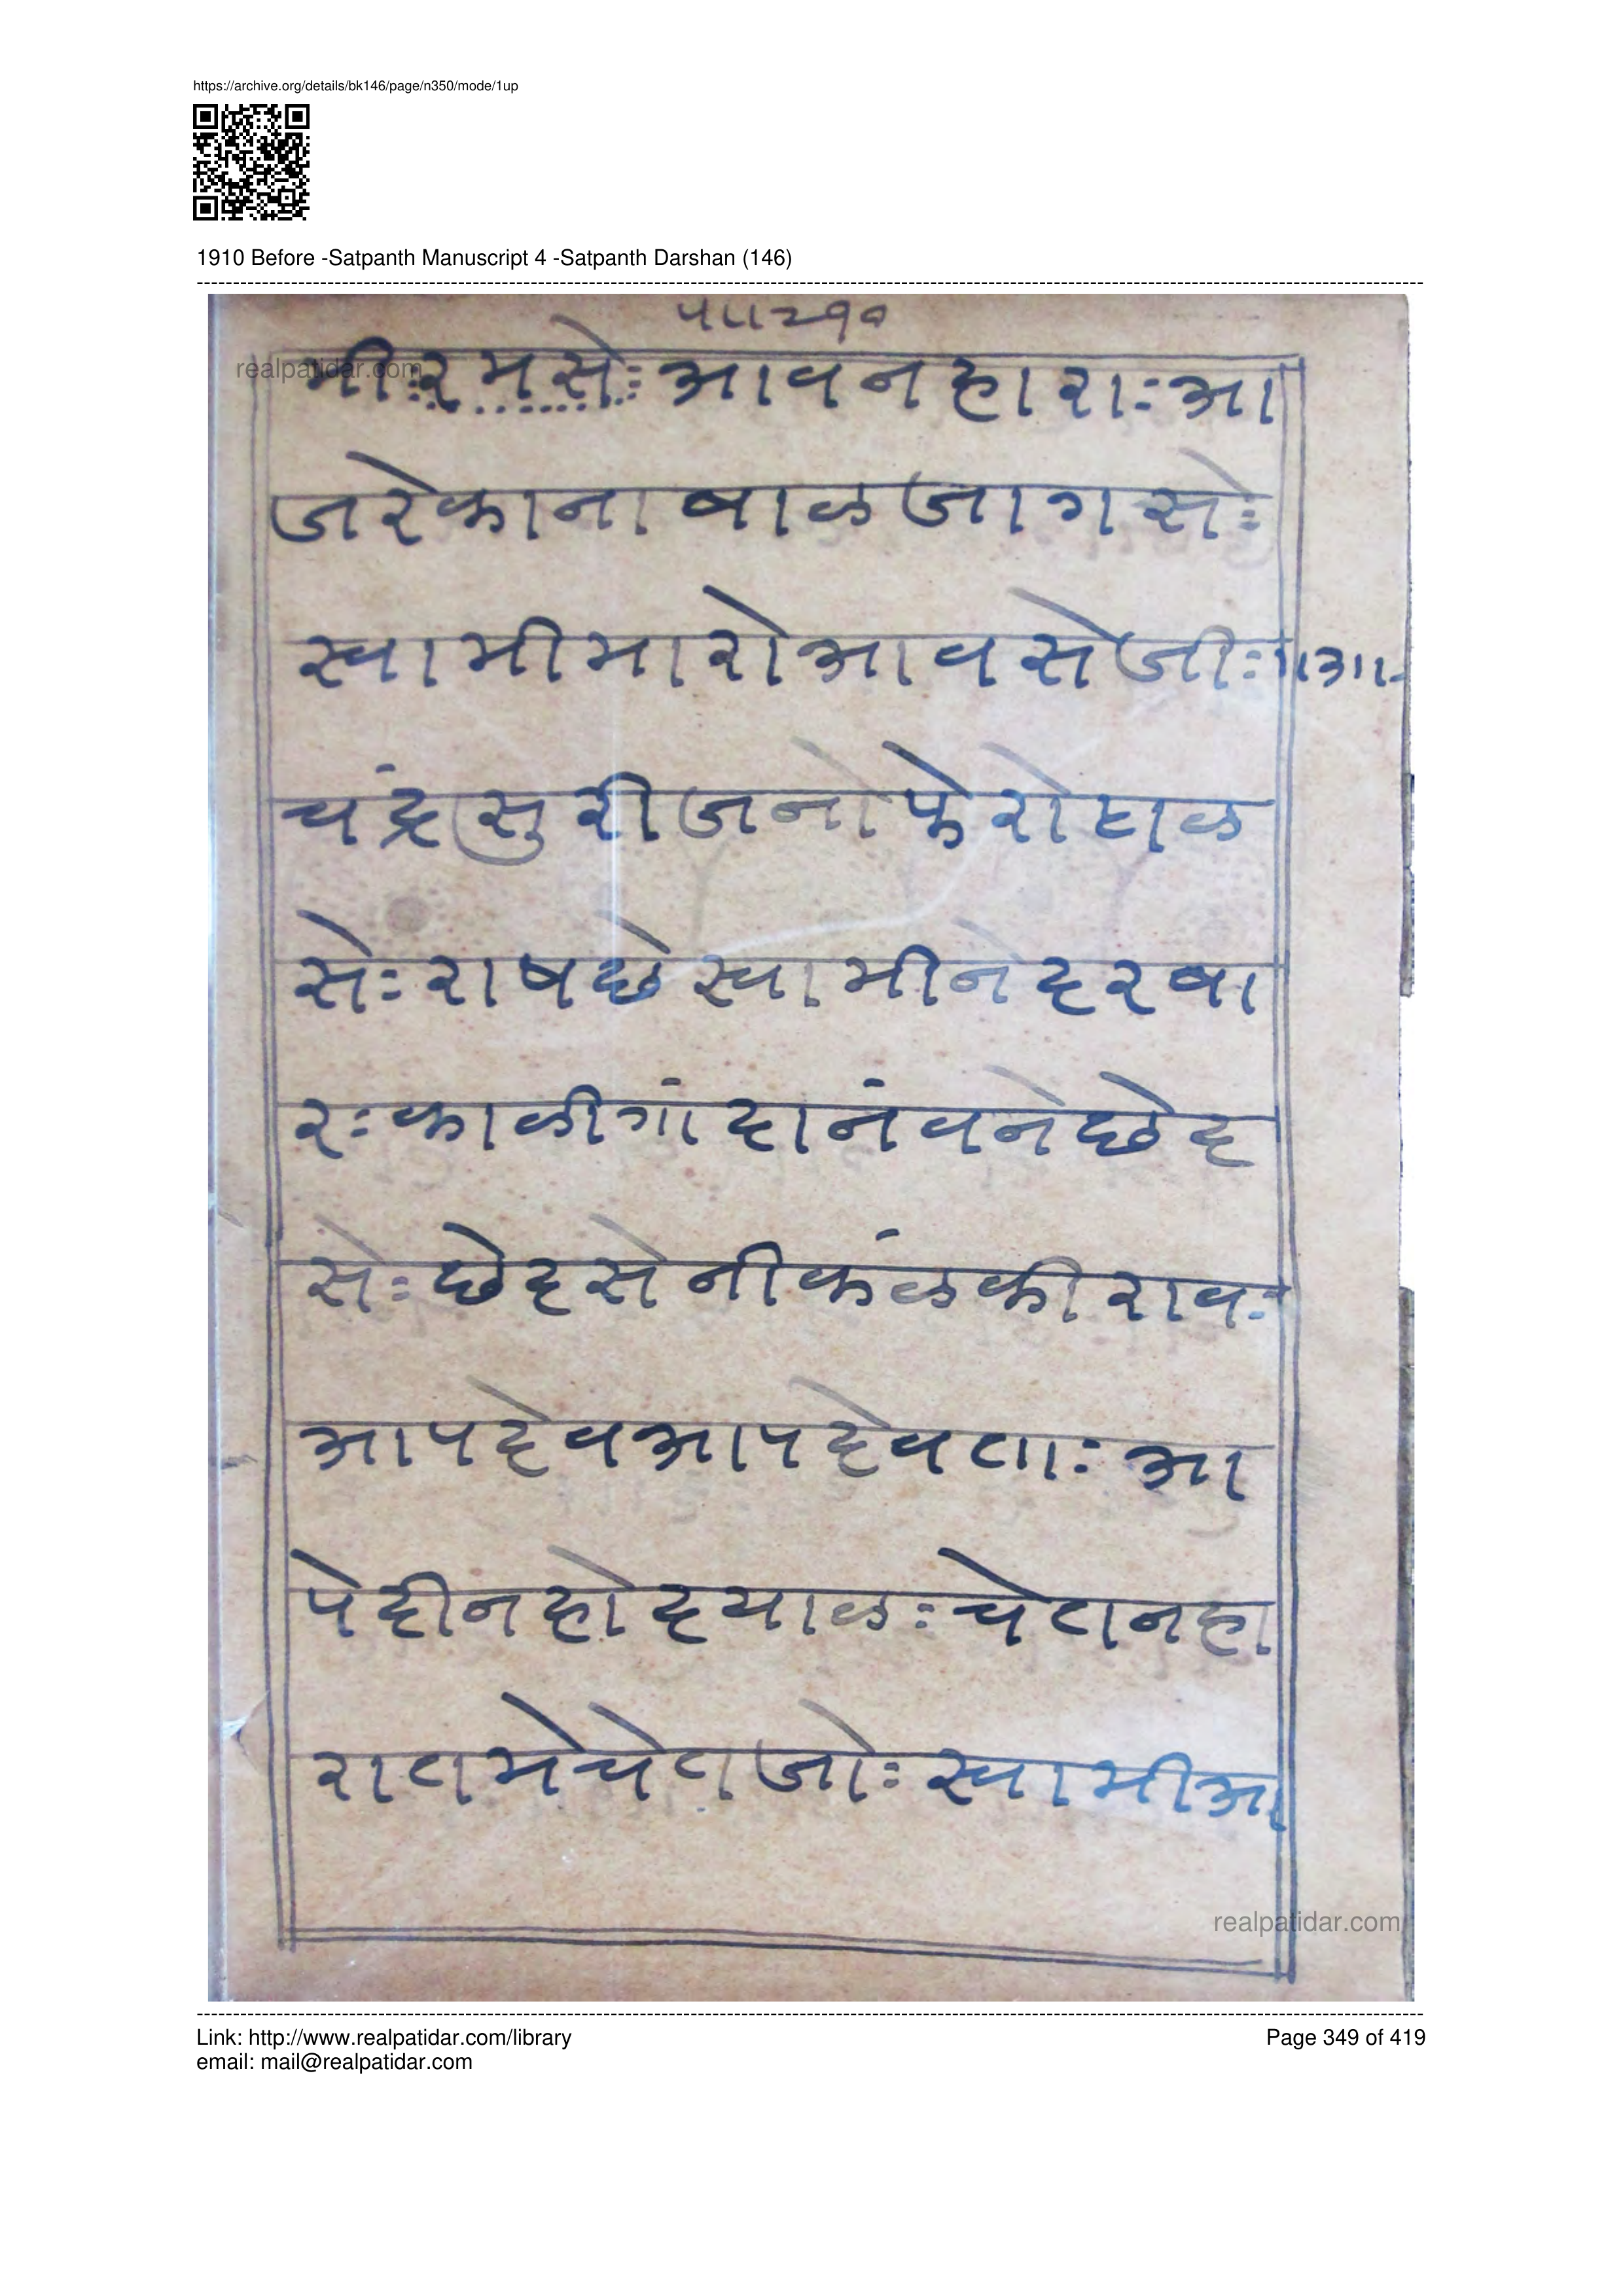 https://archive.org/details/bk146/page/n350/mode/1up
1910 Before -Satpanth Manuscript 4 -Satpanth Darshan (146)
पा।२१०
realpatidar.com
मीःरमसेः आवनहाराःआ
जरेकाना बाळ जागसेः
स्वामीमारोआवसेजीः१।आ।-
चंद्रसुरीजनोफेरोटाळ
सेःराषछेस्वामीनेदरबा
रःकाळीगांदानंवनेछेद
सेःछेदसेनीकंळकीरावः
आपदेवआपदेवताः आ
पेदीनहोदयाळःचेतनहा
रातमेचेतजोःस्वामीआ
realpatidar.com
Link: http://www.realpatidar.com/library
Page 349 of 419
email: mail@realpatidar.com